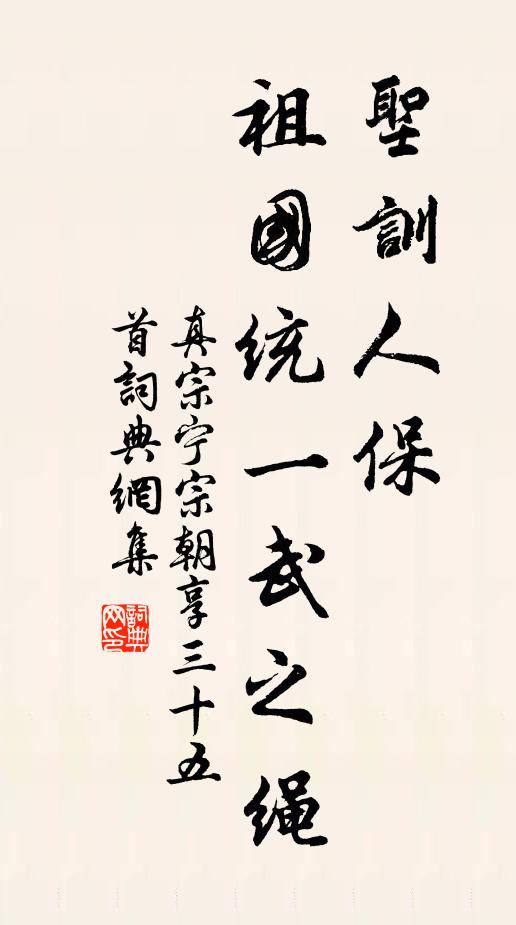 聖訓人保
祖國統一武之绳
真宗宁宗朝享三十五
首詞典網集
詞典
网印